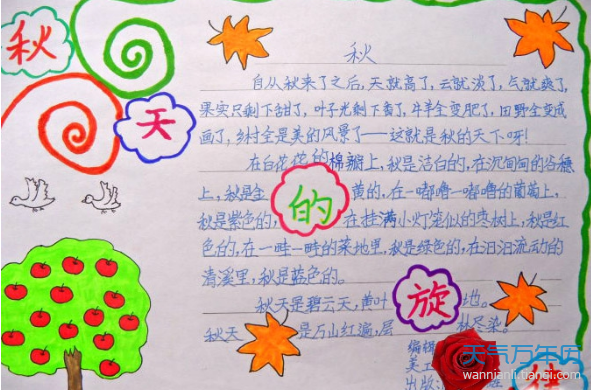 秋
天
的
旋
秋
自从秋来了之后,天就高了,云就淡了,气就爽了,
果实只剩下甜了,叶子光剩下香了,牛羊全变肥了,田野全变成
画了,乡村全是美的风景了——这就是秋的天下呀!
在白花花的棉瓣上,秋是洁白的,在沉甸甸的谷穗
上,秋是金黄的,在一嘟噜一嘟噜的葡萄上,
秋是紫色的,在挂满小灯笼似的枣树上,秋是红
色的,在一畦一畦的菜地里,秋是绿色的,在汩汩流动的
清溪里,秋是蓝色的。
秋天是碧云天,黄叶地。
秋天是万山红遍,层林尽染。
编辑
美工
出版
天气万年历
wannianli.tianqi.com